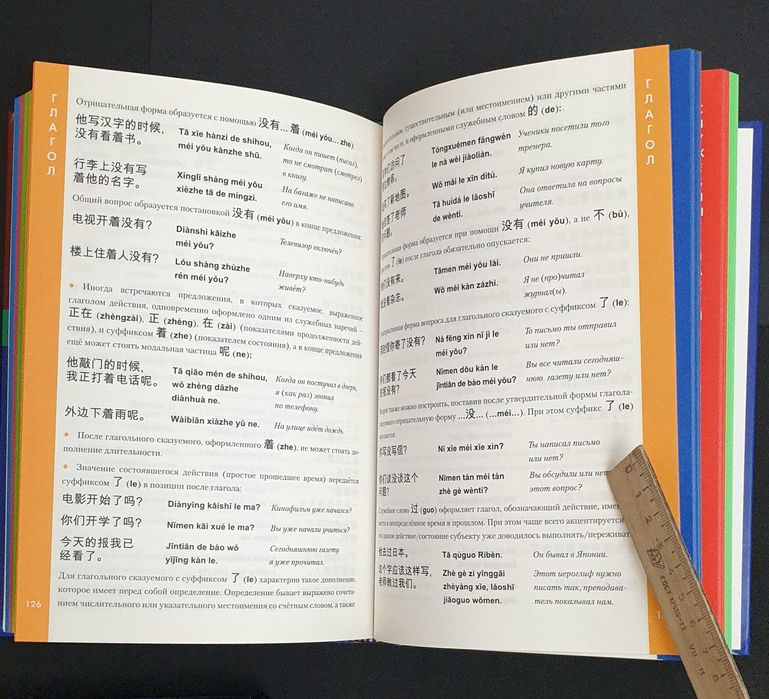 ГЛАГОЛ
Отрицательная форма образуется с помощью 没有… 着 (méi yǒu… zhe):
他写汉字的时候,
没有看着书。
Tā xiě hànzì de shíhou,
méi yǒu kànzhe shū.
Когда он пишет (писал),
то не смотрит (смотрел)
в книгу.
行李上没有写
着他的名字。
Xínglǐ shàng méi yǒu
xiězhe tā de míngzi.
На багаже не написано
его имя.
Общий вопрос образуется постановкой 没有 (méi yǒu) в конце предложения:
电视开着没有?
Diànshì kāizhe
méi yǒu?
Телевизор включён?
楼上住着人没有?
Lóu shàng zhùzhe
rén méi yǒu?
Наверху кто-нибудь
живёт?
• Иногда встречаются предложения, в которых сказуемое, выраженное
глаголом действия, одновременно оформлено одним из служебных наречий –
正在 (zhèngzài), 正 (zhèng), 在 (zài) (показателями продолженности дей-
ствия), и суффиксом 着 (zhe) (показателем состояния), а в конце предложения
ещё может стоять модальная частица 呢 (ne):
他敲门的时候,
我正打着电话呢。
Tā qiāo mén de shíhou,
wǒ zhèng dǎzhe
diànhuà ne.
Когда он постучал в дверь,
я (как раз) звонил
по телефону.
外边下着雨呢。
Wàibiān xiàzhe yǔ ne.
На улице идёт дождь.
• После глагольного сказуемого, оформленного 着 (zhe), не может стоять до-
полнение длительности.
• Значение состоявшегося действия (простое прошедшее время) передаётся
суффиксом 了 (le) в позиции после глагола:
电影开始了吗?
Diànyǐng kāishǐ le ma?
Кинофильм уже начался?
你们开学了吗?
Nǐmen kāi xué le ma?
Вы уже начали учиться?
今天的报我已
经看了。
Jīntiān de bào wǒ
yǐjīng kàn le.
Сегодняшнюю газету
я уже прочитал.
Для глагольного сказуемого с суффиксом 了 (le) характерно такое дополнение,
которое имеет перед собой определение. Определение бывает выражено сочета-
нием числительного или указательного местоимения со счётным словом, а также
126
ГЛАГОЛ
существительным (или местоимением) или другими частями
оформленными служебным словом 的 (de):
Tóngxuémen fǎngwèn
le nà wèi jiàoliàn.
Ученики посетили того
тренера.
了新地图。
Wǒ mǎi le xīn dìtú.
Я купил новую карту.
答了老师
问题。
Tā huídá le lǎoshī
de wèntí.
Она ответила на вопросы
учителя.
форма образуется при помощи 没有 (méi yǒu), а не 不 (bù),
了 (le) после глагола обязательно опускается:
们没有来。
Tāmen méi yǒu lái.
Они не пришли.
没看杂志。
Wǒ méi kàn zázhì.
Я не (про)читал
журнал(ы).
форма вопроса для глагольного сказуемого с суффиксом 了 (le):
封信你寄了没有?
Nà fēng xìn nǐ jì le
méi yǒu?
То письмо ты отправил
или нет?
们都看了今天
报没有?
Nǐmen dōu kàn le
jīntiān de bào méi yǒu?
Вы все читали сегодняш-
нюю газету или нет?
также можно построить, поставив после утвердительной формы глагола-
отрицательную форму …没… (…méi…). При этом суффикс 了 (le)
写没写信?
Nǐ xiě méi xiě xìn?
Ты написал письмо
или нет?
们谈没谈这个
问题?
Nǐmen tán méi tán
zhè gè wèntí?
Вы обсудили или нет
этот вопрос?
слово 过 (guo) оформляет глагол, обозначающий действие, имев
место в неопределённое время в прошлом. При этом чаще всего акцентируется
данное действие/состояние субъекту уже доводилось выполнять/переживат
他去过日本。
Tā qùguo Rìběn.
Он бывал в Японии.
这个字应该这样写,
老师教过我们。
Zhè gè zì yīnggāi
zhèyàng xiě, lǎoshī
jiāoguo wǒmen.
Этот иероглиф нужно
писать так, преподава-
тель показывал нам.